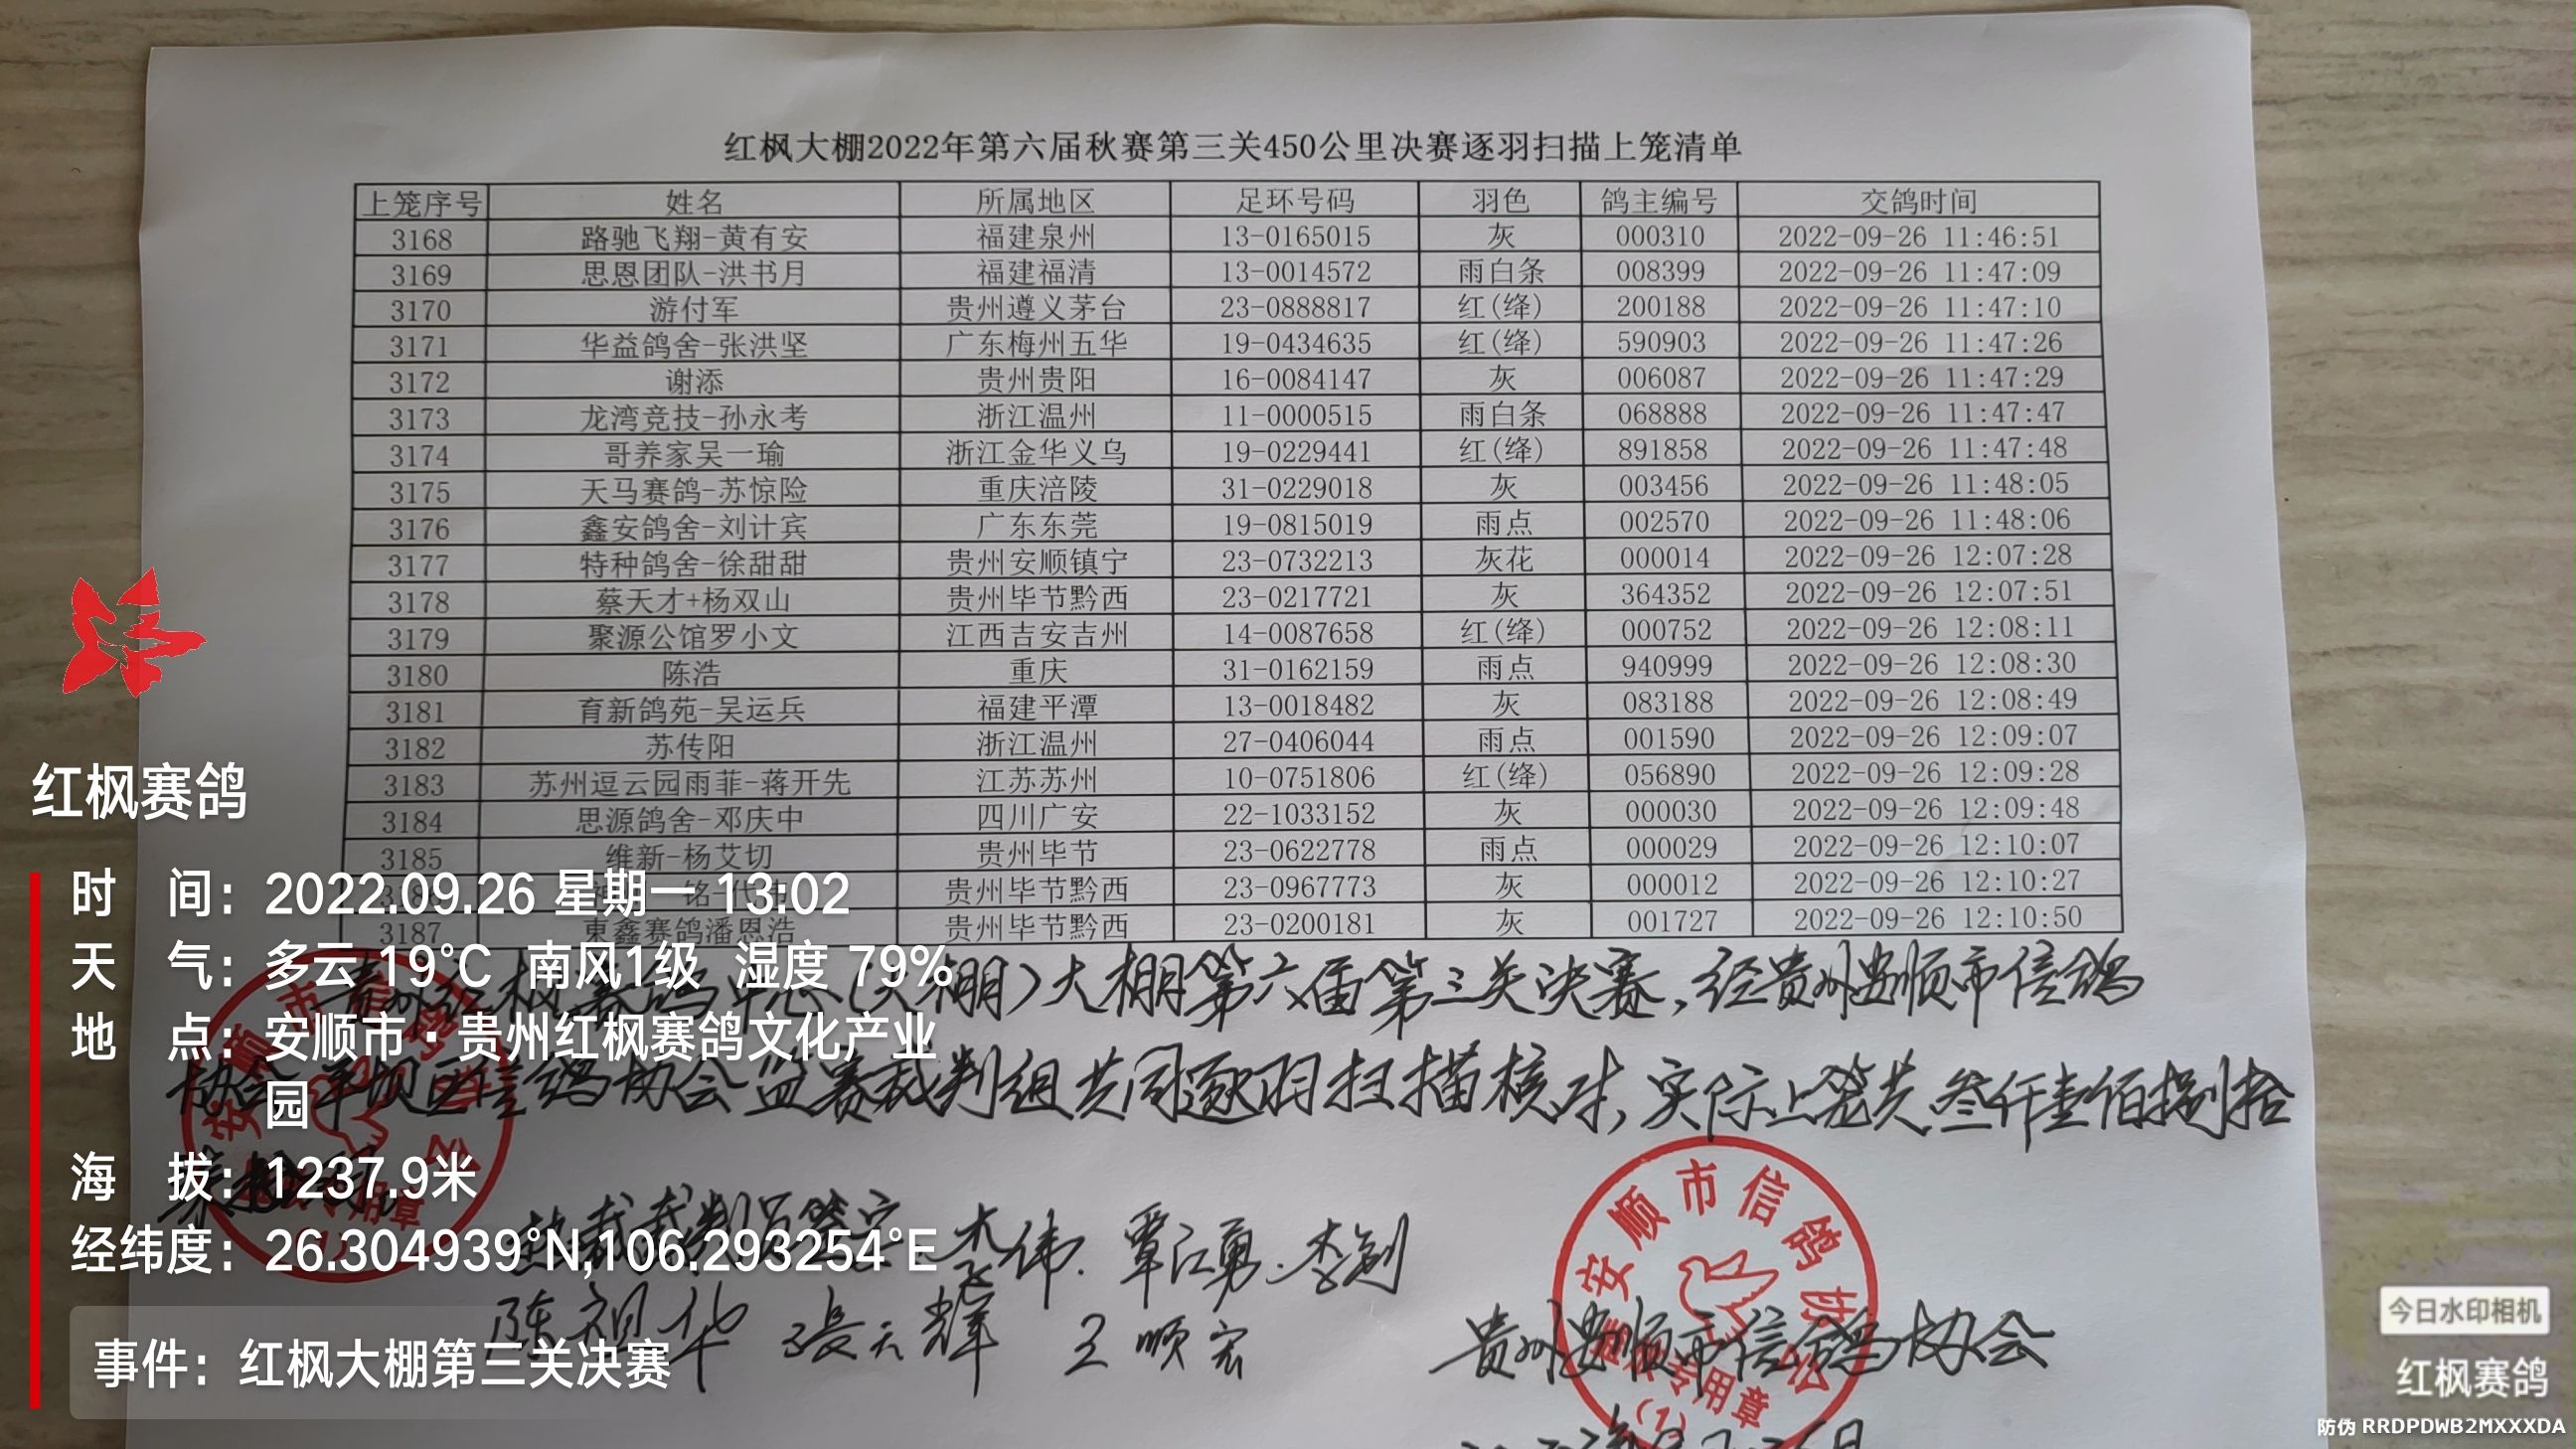 红枫大棚2022年第六届秋赛第三关450公里决赛逐羽扫描上笼清单
上笼序号 姓名 所属地区 足环号码 羽色 鸽主编号 交鸽时间
3168 路驰飞翔-黄有安 福建泉州 13-0165015 灰 000310 2022-09-26 11:46:51
3169 思恩团队-洪书月 福建福清 13-0014572 雨白条 008399 2022-09-26 11:47:09
3170 游付军 贵州遵义茅台 23-0888817 红(绛) 200188 2022-09-26 11:47:10
3171 华益鸽舍-张洪坚 广东梅州五华 19-0434635 红(绛) 590903 2022-09-26 11:47:26
3172 谢添 贵州贵阳 16-0084147 灰 006087 2022-09-26 11:47:29
3173 龙湾竞技-孙永考 浙江温州 11-0000515 雨白条 068888 2022-09-26 11:47:47
3174 哥养家吴一瑜 浙江金华义乌 19-0229441 红(绛) 891858 2022-09-26 11:47:48
3175 天马赛鸽-苏惊险 重庆涪陵 31-0229018 灰 003456 2022-09-26 11:48:05
3176 鑫安鸽舍-刘计宾 广东东莞 19-0815019 雨点 002570 2022-09-26 11:48:06
3177 特种鸽舍-徐甜甜 贵州安顺镇宁 23-0732213 灰花 000014 2022-09-26 12:07:28
3178 蔡天才+杨双山 贵州毕节黔西 23-0217721 灰 364352 2022-09-26 12:07:51
3179 聚源公馆罗小文 江西吉安吉州 14-0087658 红(绛) 000752 2022-09-26 12:08:11
3180 陈浩 重庆 31-0162159 雨点 940999 2022-09-26 12:08:30
3181 育新鸽苑-吴运兵 福建平潭 13-0018482 灰 083188 2022-09-26 12:08:49
3182 苏传阳 浙江温州 27-0406044 雨点 001590 2022-09-26 12:09:07
3183 苏州逗云园雨菲-蒋开先 江苏苏州 10-0751806 红(绛) 056890 2022-09-26 12:09:28
3184 思源鸽舍-邓庆中 四川广安 22-1033152 灰 000030 2022-09-26 12:09:48
3185 维新-杨艾切 贵州毕节 23-0622778 雨点 000029 2022-09-26 12:10:07
贵州毕节黔西 23-0967773 灰 000012 2022-09-26 12:10:27
3187 東鑫赛鸽潘恩浩 贵州毕节黔西 23-0200181 灰 001727 2022-09-26 12:10:50
贵州红枫赛鸽中心(大棚)大棚第六届第三关决赛,经贵州安顺市信鸽
协会 平坝区信鸽协会监赛裁判组共同逐羽扫描核对,实际上笼共叁仟壹佰捌拾
裁判员签字 伟.覃江勇.李剑
陈祖华 张天辉 王顺宏
贵州安顺市信鸽协会
安顺市信鸽协会
专用章
(1)
红枫赛鸽
时 间：2022.09.26 星期一 13:02
天 气：多云 19℃ 南风1级 湿度 79%
地 点：安顺市·贵州红枫赛鸽文化产业
园
海 拔：1237.9米
经纬度：26.304939°N,106.293254°E
事件：红枫大棚第三关决赛
今日水印相机
红枫赛鸽
防伪 RRDPDWB2MXXXDA